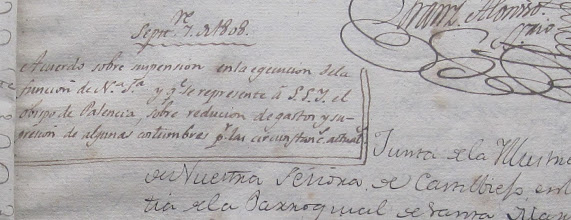 Franz. Alonso
Srio
Septe. 7. de 1808.
Acuerdo sobre supension en la egecucion de la
funcion de N.a S.ra y q.e se represente á S.S.I. el
obispo de Palencia sobre reducion de gastos y su-
presion de algunas costumbres p.r las circunstanc.s actual.s
Junta de la Illustre
de Nuestra Señora de
tia de la Parroquial de Santa